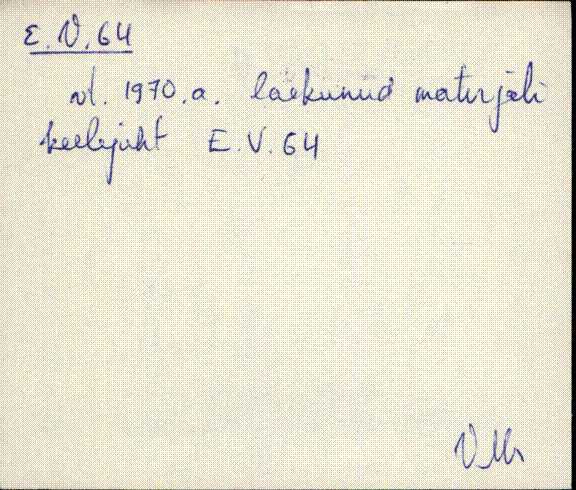 E. V. 64
vt. 1970. a. laekunud materjali
keelejuht E. V. 64
VMr